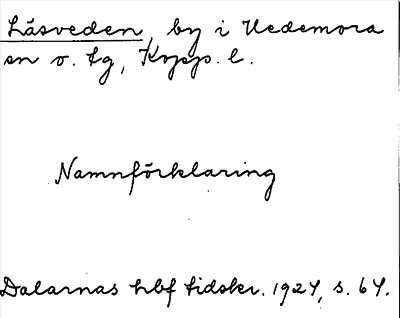 Låsveden, by i Hedemora
sn o. tg, Kopp. l.
Namnförklaring
Dalarnas hbf tidskr. 1924, s. 64.